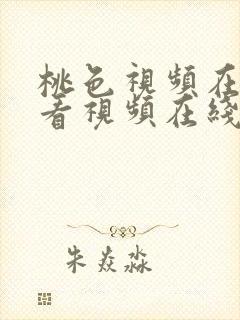 桃色視頻在
看視頻在綫
朱焱淼